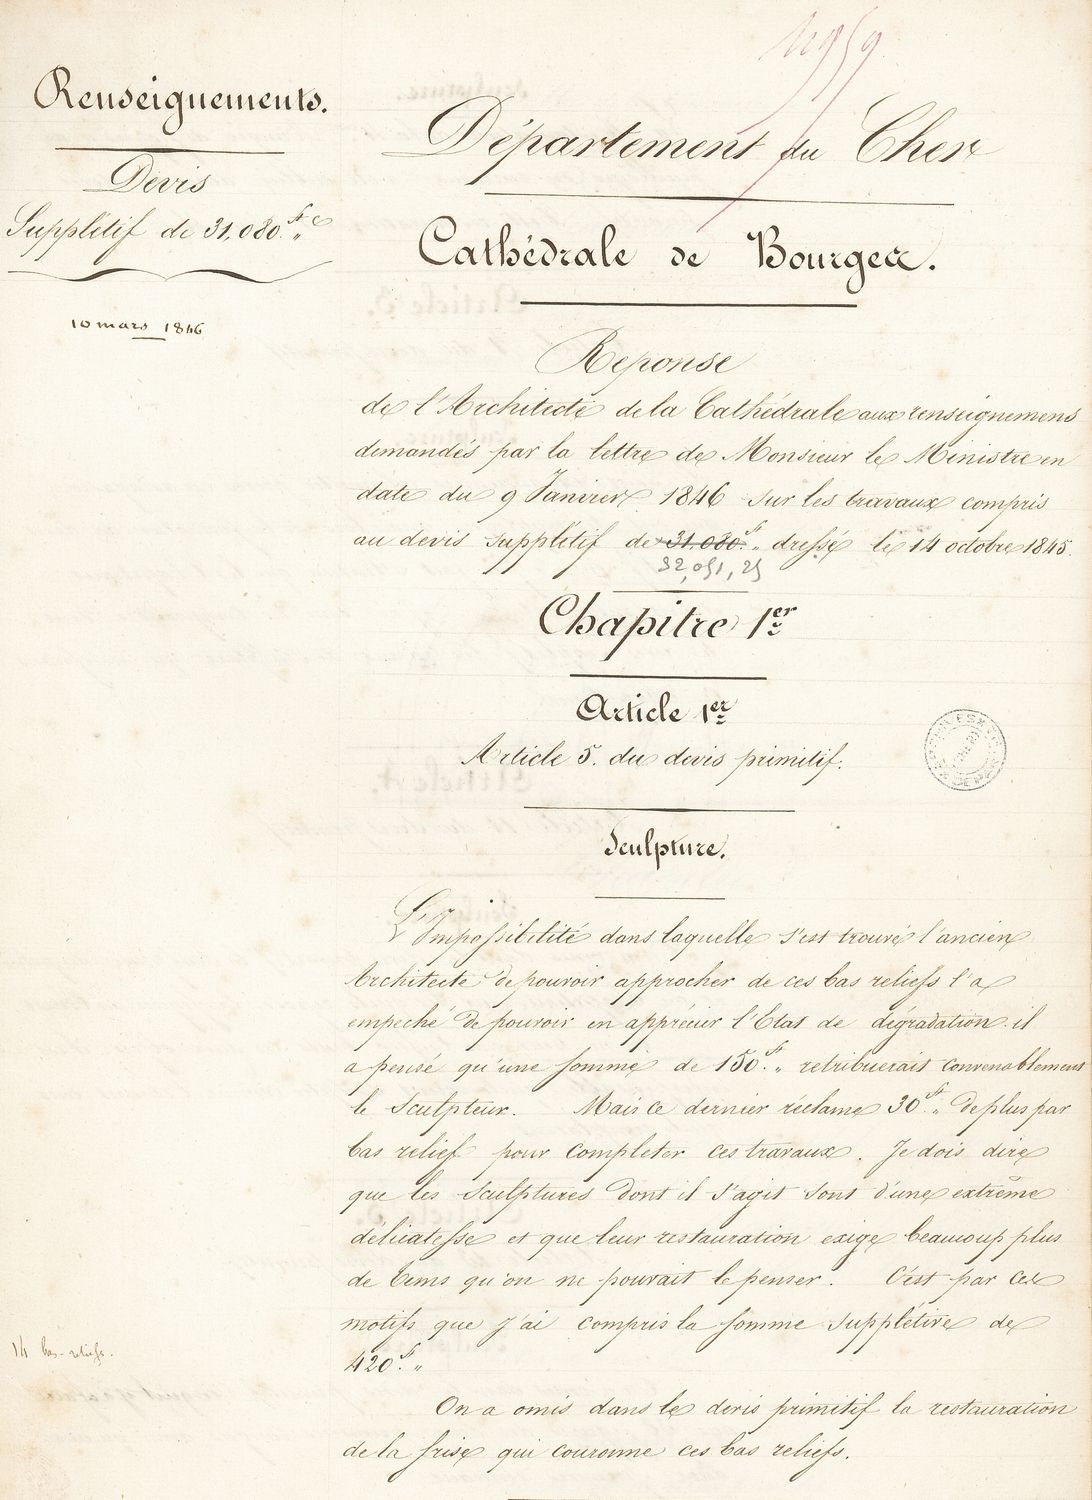 Renseignements.
Devis
Supplétif de 31,080.fr "c
10 mars 1846
Département du Cher
Cathédrale de Bourges.
Reponse
de l'Architecte de la Cathédrale aux renseignemens
demandés par la lettre de Monsieur le Ministre en
date du 9 Janvier 1846 sur les travaux compris
au devis supplétif de 31,080.fr " dressé le 14 octobre 1845.
32,051,25
Chapitre 1er
Article 1er
Article 5. du devis primitif.
Sculpture.
L'Impossibilité dans laquelle s'est trouvé l'ancien
Architecte de pouvoir approcher de ces bas reliefs l'a
empeché de pouvoir en apprécier l'Etat de dégradation. il
a pensé qu'une somme de 150.fr " retribuerait convenablement
le Sculpteur. Mais ce dernier réclame 30.fr " de plus par
bas relief pour completer ces travaux. Je dois dire
que les sculptures dont il s'agit sont d'une extrême
délicatesse et que leur restauration exige beaucoup plus
de tems qu'on ne pourait le penser. C'est par ces
motifs que j'ai compris la somme supplétive de
420.fr "
14 bas-reliefs.
On a omis dans le devis primitif la restauration
de la frise qui couronne ces bas reliefs.